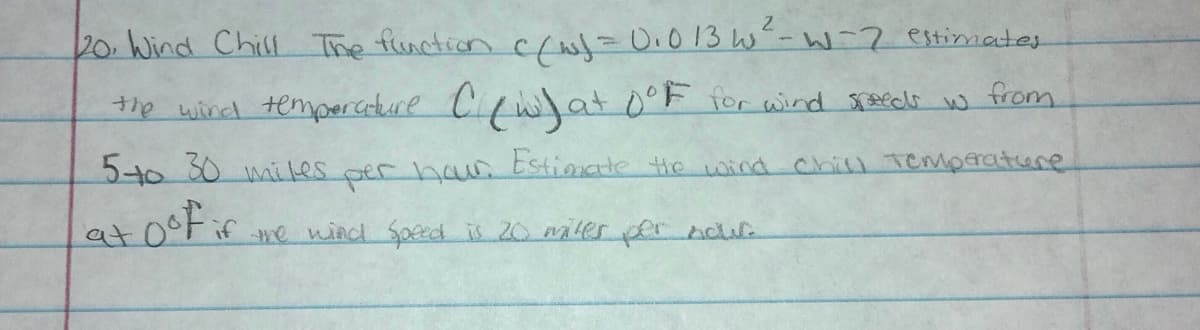 20. Wind Chill The function c(w)=0.013w²-w-7 estimates
the wind temperature C(w) at 0°F for wind speeds w from
5 to 30 miles per hour. Estimate the wind chill temperature
at 0°F if the wind speed is 20 miles per hour.